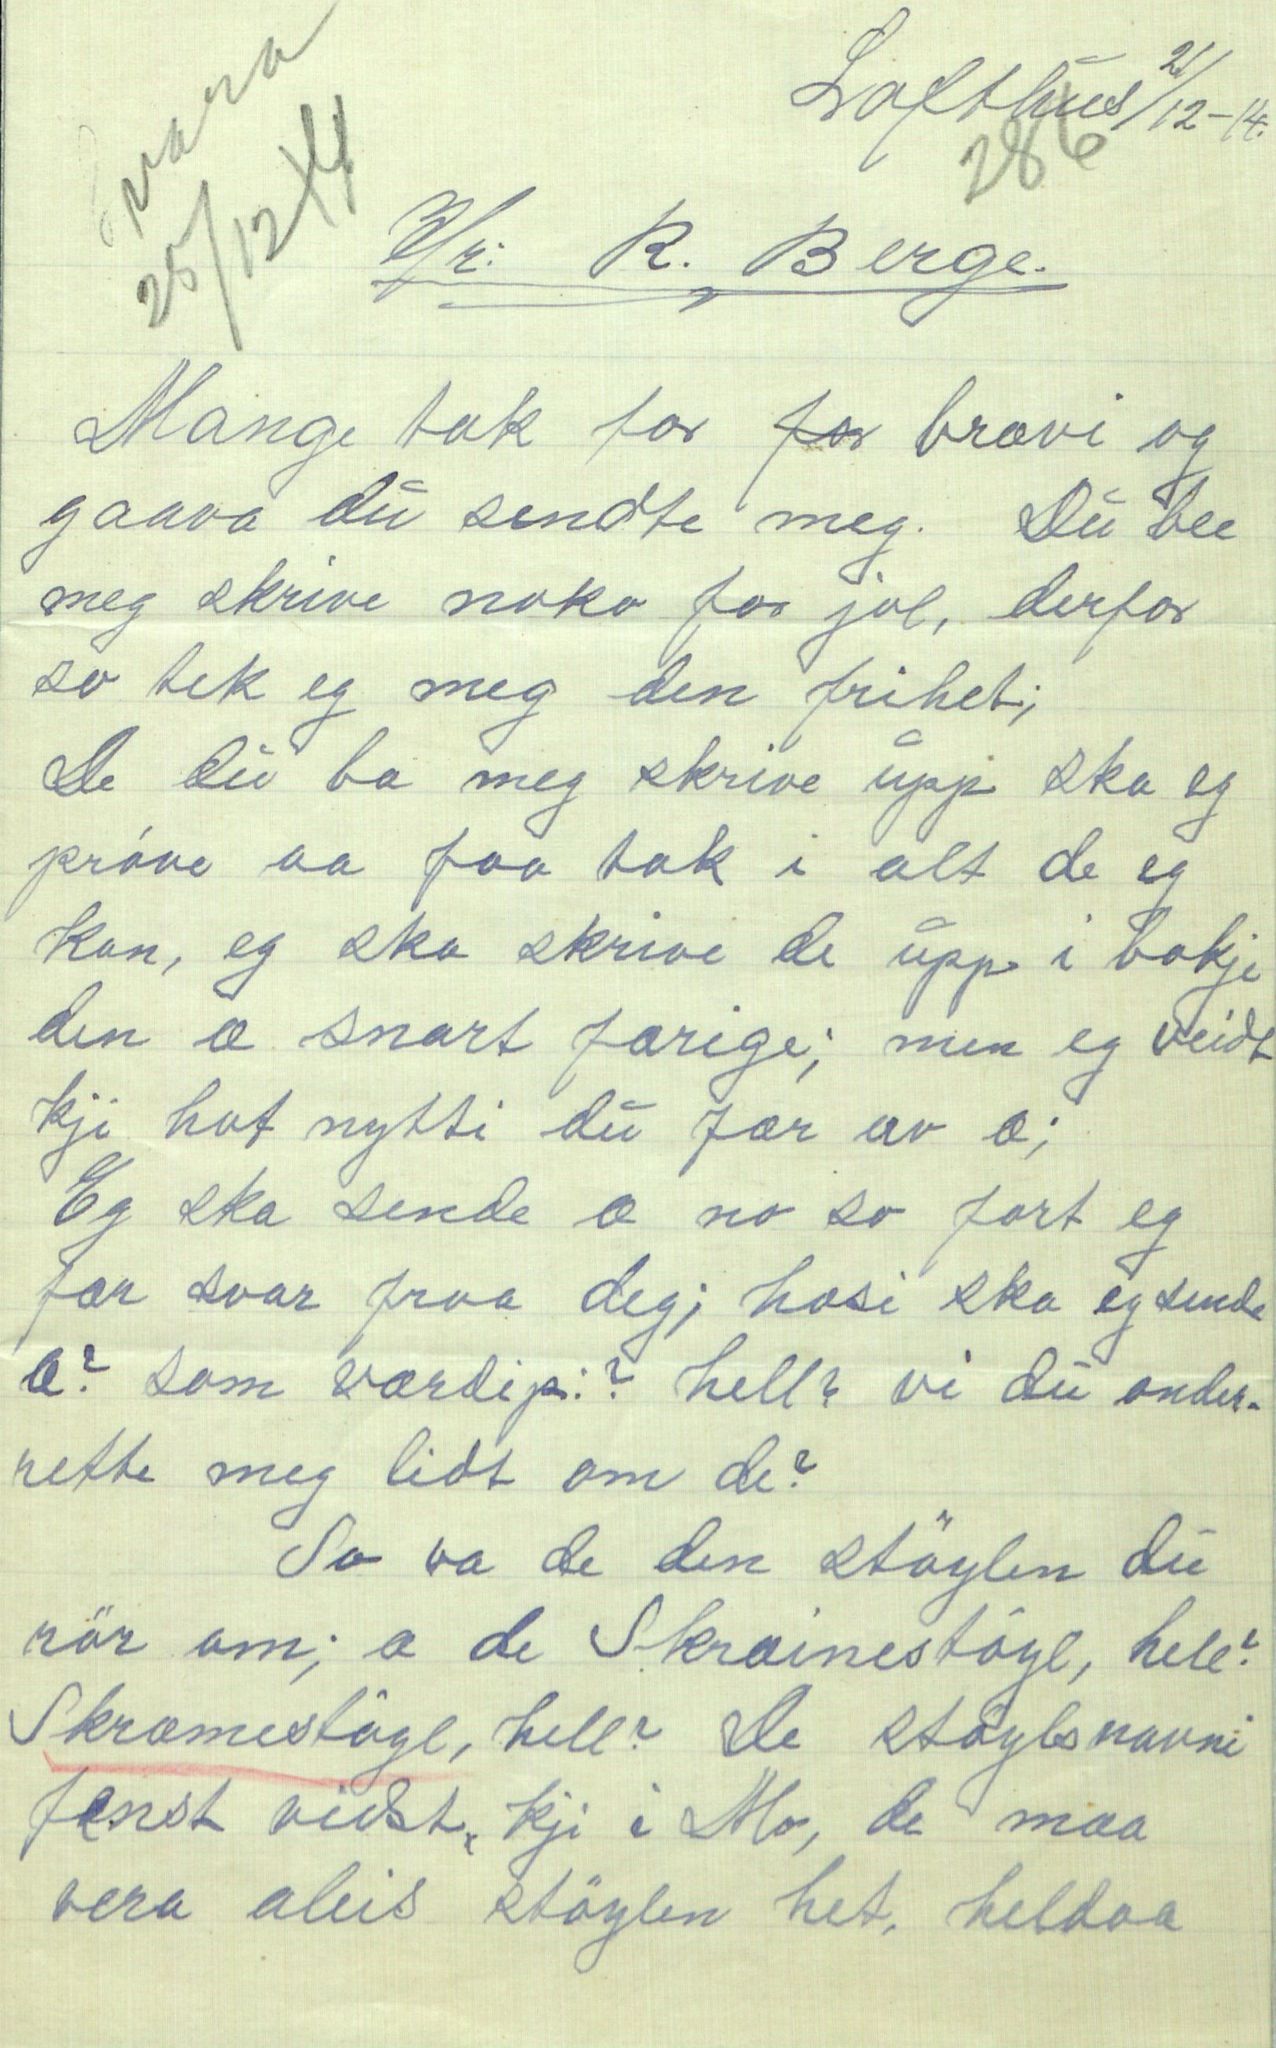 Lofthus 21/12-14.
286
Svara
25/12 14
Hr: R. Berge.
Mange tak for for brævi og
gaava du sendte meg. Du bee
meg skrive noko før jol, derfor
so tek eg meg den frihet;
De du ba meg skrive upp ska eg
prøve aa faa tak i alt de eg
kan, eg ska skrive de upp i bokje
den æ snart færige; men eg veidt
kji hot nytti du fær av æ;
Eg ska sende æ no so fort eg
fær svar fraa deg; hosi ska eg sende
æ? som værdip:? hell? vi du onder-
rette meg lidt om de?
So va de den støylen du
rør om; æ de Skrainestøyl, hell?
Skræmestøyl, hell? De støylsnavni
fenst vidst kji i Mo, de maa
vera aleis støylen het, heldaa